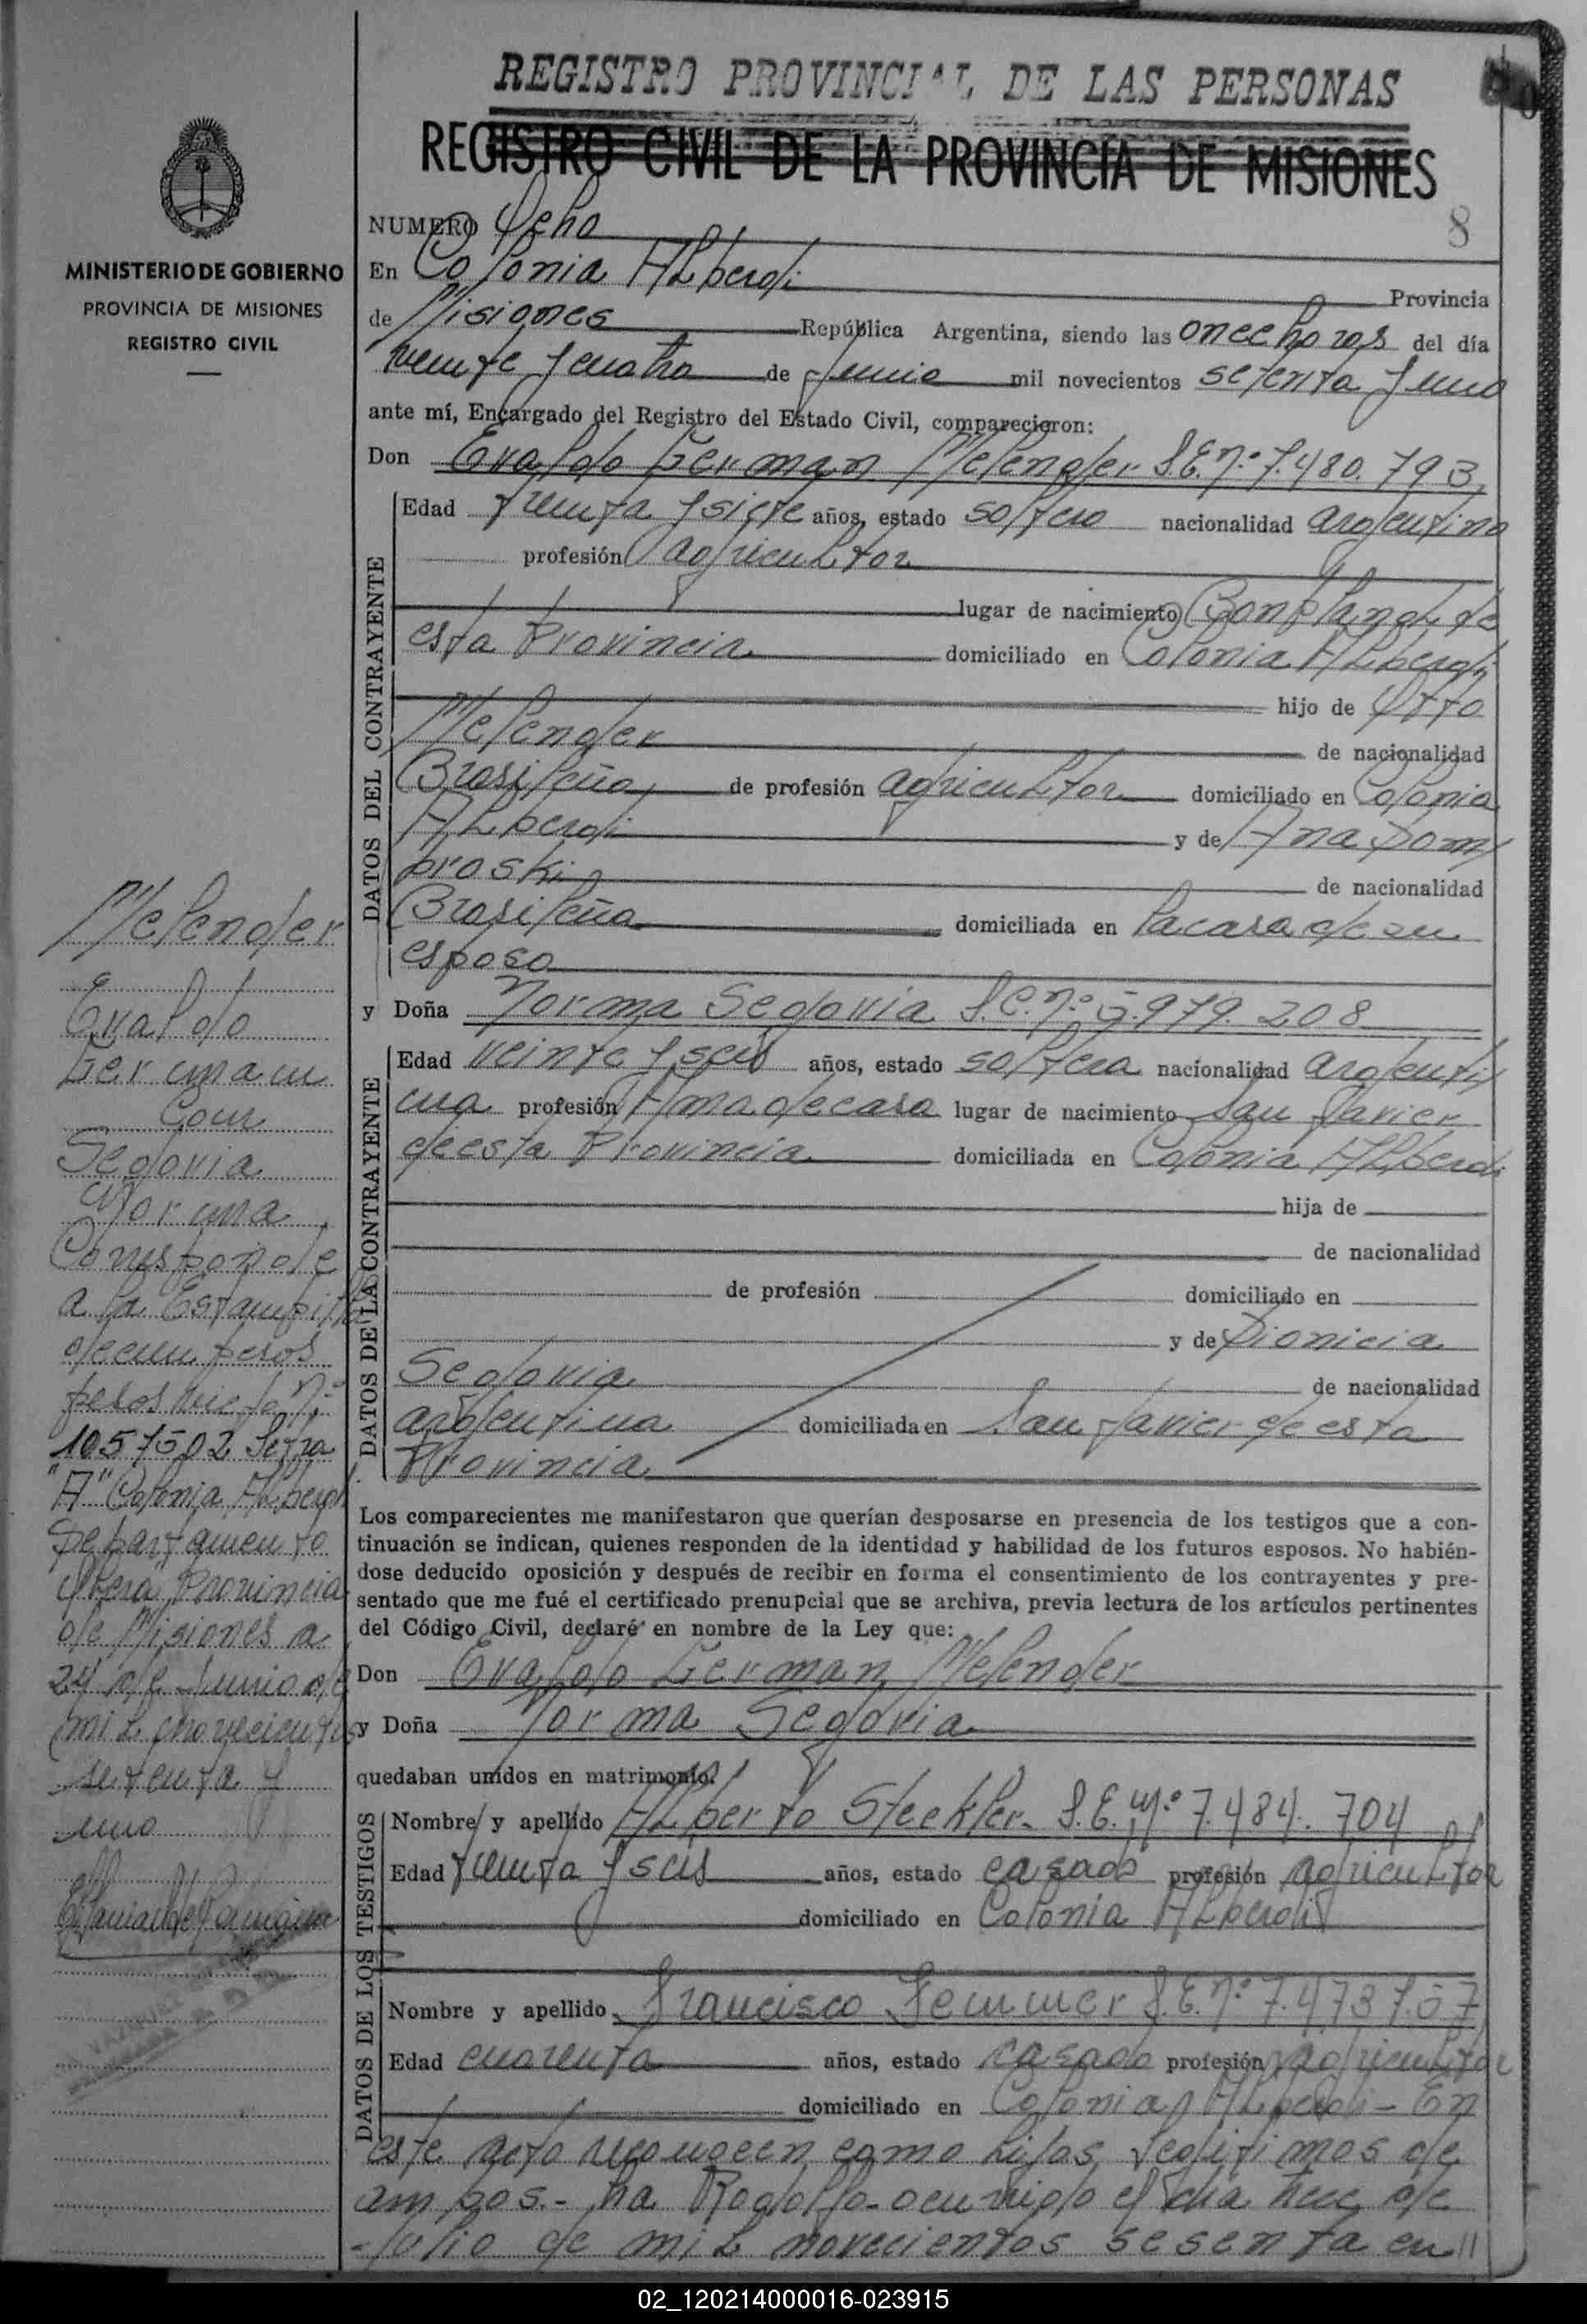 REGISTRO PROVINCIAL DE LAS PERSONAS
REGISTRO CIVIL DE LA PROVINCIA DE MISIONES
MINISTERIO DE GOBIERNO
PROVINCIA DE MISIONES
REGISTRO CIVIL
8
NUMERO Ocho
En Colonia ALberdi Provincia
de Misiones República Argentina, siendo las once horas del día
veinte y cuatro de Junio mil novecientos setenta y uno
ante mí, Encargado del Registro del Estado Civil, comparecieron:
Don Evaldo German Melender S.E.nº 7.480.793
Edad treinta y siete años, estado soltero nacionalidad argentino
profesión agricuLtor
lugar de nacimiento BonpLand de
esta Provincia domiciliado en Colonia ALberdi
hijo de Otto
Melender de nacionalidad
Brasileña de profesión agricuLtor domiciliado en Colonia
ALberdi y de Ana Dom
broski de nacionalidad
Brasileña domiciliada en la casa de su
esposo
y Doña Norma Segovia S.C.nº 5.979.208
Edad veinte y seis años, estado soltera nacionalidad argenti
na profesión Ama de casa lugar de nacimiento San Javier
de esta Provincia domiciliada en Colonia ALberdi
hija de
de nacionalidad
de profesión domiciliado en
y de Dionicia
Segovia de nacionalidad
argentina domiciliada en San Javier de esta
Provincia
Los comparecientes me manifestaron que querían desposarse en presencia de los testigos que a con-
tinuación se indican, quienes responden de la identidad y habilidad de los futuros esposos. No habién-
dose deducido oposición y después de recibir en forma el consentimiento de los contrayentes y pre-
sentado que me fué el certificado prenupcial que se archiva, previa lectura de los artículos pertinentes
del Código Civil, declaré en nombre de la Ley que:
Don Evaldo German Melender
y Doña Norma Segovia
quedaban unidos en matrimonio.
Nombre y apellido ALberto Steckler S.E.nº 7.484.704
Edad treinta y seis años, estado casado profesión agricuLtor
domiciliado en Colonia ALberdi
Nombre y apellido Francisco S.E.nº
Edad cuarenta años, estado casado profesión agricuLtor
domiciliado en Colonia ALberdi - En
este acto reconocen como hijos legitimos de
ambos.- Rodolfo ocurrido el dia de
Julio de miL novecientos sesenta en
DATOS DEL CONTRAYENTE
DATOS DE LA CONTRAYENTE
DATOS DE LOS TESTIGOS
Melender
Evaldo
German
Con
Segovia
Norma
Corresponde
a la Estampilla
de cien pesos
pesos nº
1057502 Letra
"A" Colonia ALberdi
Departamento
Obera Provincia
de Misiones a
24 de Junio de
miL novecientos
setenta y
uno
02_120214000016-023915